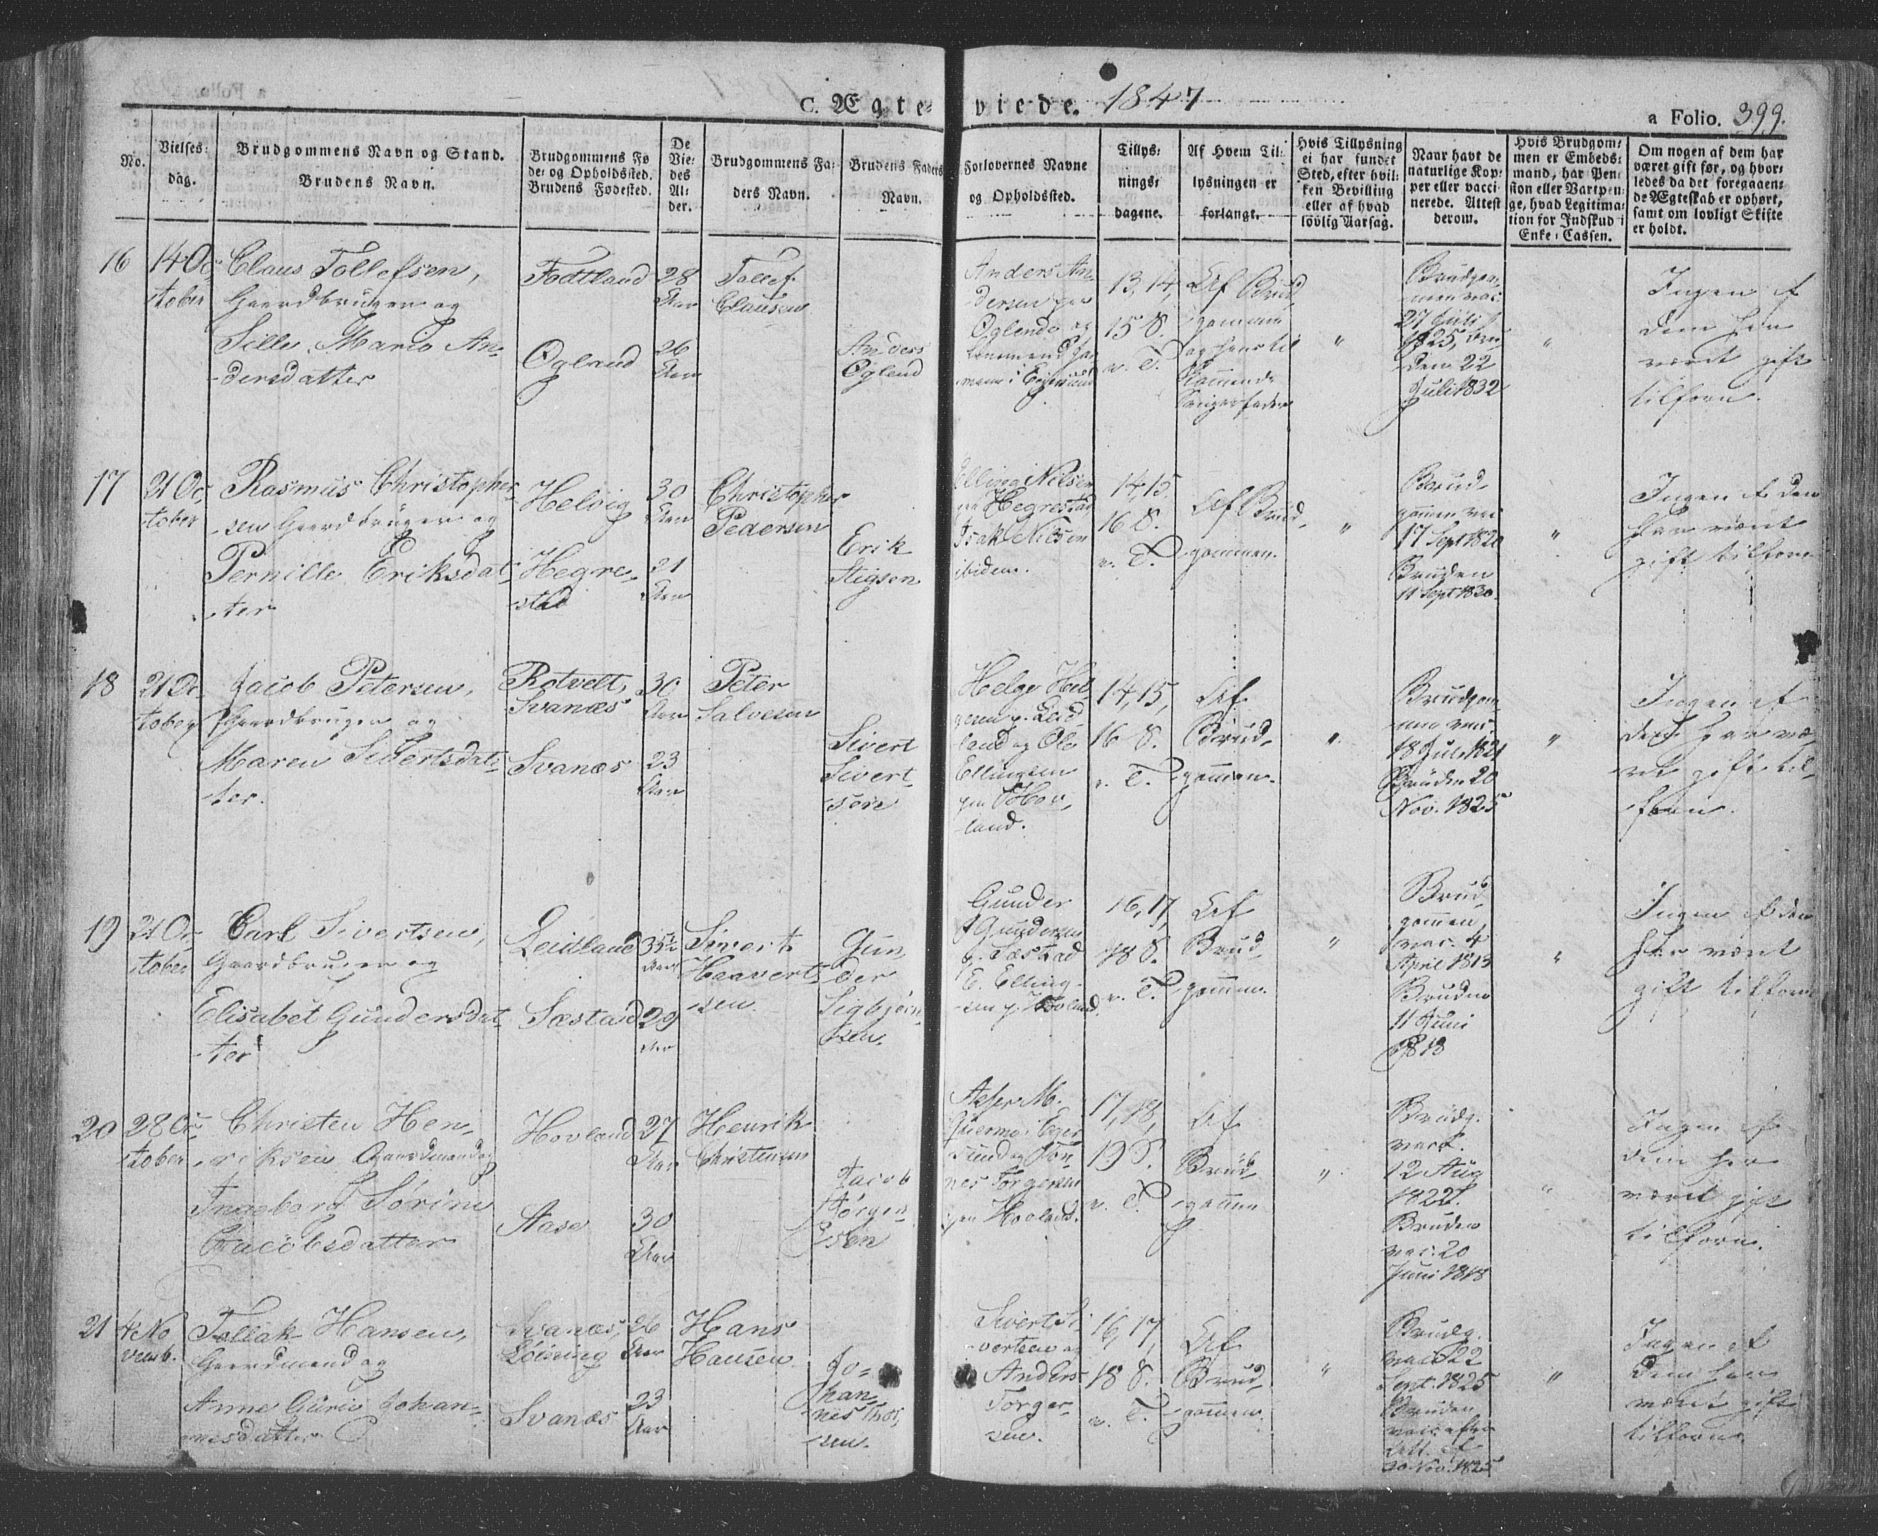 C. Ægte-viede. 1847
a Folio. 399.
No.
Vielses-dag.
Brudgommens Navn og Stand. Brudens Navn.
Brudgommens Føde- og Opholdssted. Brudens Fødested.
De Viedes Alder.
Brudgommens Faders Navn.
Brudens Faders Navn.
Forlovernes Navne og Opholdsted.
Tillysningsdagene.
Af Hvem Tillysningen er forlangt.
Hvis Tillysning ei har fundet Sted, efter hvilken Bevilling eller af hvad lovlig Aarsag.
Naar havt de naturlige Kopper eller vaccinerede. Attest derom.
Hvis Brudgommen er Embedsmand, har Pension eller Vartpenge, hvad Legitimation for Indskud i Enke-Cassen.
Om nogen af dem har været gift før, og hvorledes da det foregaaende Ægteskab er ophørt, samt om lovligt Skifte er holdt.
16
14 Oc-
tober
Claus Tollefsen,
Gaardbruger og
Sille Marie An-
dersdatter
Fodtland
Ogland
28
Aar
26
Aar
Tollef
Clausen
Anders
Oglend
Anders An-
dersen paa
Oglende og
mand i Egersund
13, 14,
15 S.
e. T.
Af Brud-
gommen
og hans til-
kommende
Svigerfader
"
Brudgom-
men vac.
27 Juli
1825,
den 22
Juli 1832
"
Ingen af
dem har
været gift
tilforn.
17
21 Oc-
tober
Rasmus Christopher-
sen Gaardbruger og
Pernille Eriksdat-
ter
Helvig
Hegre-
stad
30
Aar
21
Aar
Christopher
Pedersen
Erik
Stigsen
Elling Nilsen
paa Hegrestad
Isak Nilsen
ibidem.
14, 15,
16 S.
e. T.
Af Brud-
gommen.
"
Brud-
gommen vac.
17 Sept 1820
Bruden
11 Sept 1830.
"
Ingen af dem
har været
gift tilforn
18
21 Oc-
tober
Jacob Petersen,
Gaardbruger og
Maren Sivertsdat-
ter.
Rotvelt,
Svanæs
Svanæs
30
Aar
23
Aar
Peter
Salvesen
Sivert
Sivert-
sen
Helge Hel-
gesen p. Leid-
land og Ole
Ellingsen
paa Hov-
land.
14, 15,
16 S.
e. T.
Af
Brud-
gommen.
"
Brudgom-
men vac.
18 Juli 1821
Bruden 20
Nov. 1825
"
Ingen af
dem har væ-
ret gift til-
forn.
19
21 Oc-
tober
Carl Sivertsen,
Gaardbruger og
Elisabet Gundersdat-
ter
Leidland
Sæstad
35
Aar
29
Aar
Sivert
Haavert-
sen.
Gun-
der
Sigbjørn-
sen.
Gunder
Gundersen
p. Sæstad
E. Elling-
sen p. Hovland
16, 17,
18 S.
e. T.
Af
Brud-
gommen.
"
Brud-
gommen
vac. 4
April 1813
Bruden
11 Juni
1818
"
Ingen af dem
har været
gift tilforn
20
28 Oc-
tober
Christen Hen-
riksen Gaardmand og
Ingeborg Sørine
Jacobsdatter
Hovland
Aase
27
Aar
30
Aar
Henrik
Christensen
Jacob
Jørgen-
sen
M.
i Eger-
sund og Tøn-
nes Torgersen
paa Hovland.
17, 18,
19 S.
e. T.
Af
Brud-
gommen
"
Brudg.
vac.
12 Aug
1822
Bruden
vac. 20
Juni 1818
"
Ingen af
dem har
været gift
tilforn.
21
4 No-
vemb.
Tollak Hansen,
Gaardmand og
Anne Gurie Johan-
nesdatter
Svanæs,
Svanæs
26
Aar
23
Aar
Hans
Hansen
Jo-
han-
nes Thor-
sen.
Sivert Si-
vertsen og
Anders
Torger-
sen.
16, 17,
18 S.
e. T.
Af
Brud-
gommen.
"
Brudg.
vac. 22
Sept. 1825
Bruden
vac. efter
Att. af
20 Nov. 1825
"
Ingen af
dem har
været gift
tilforn.